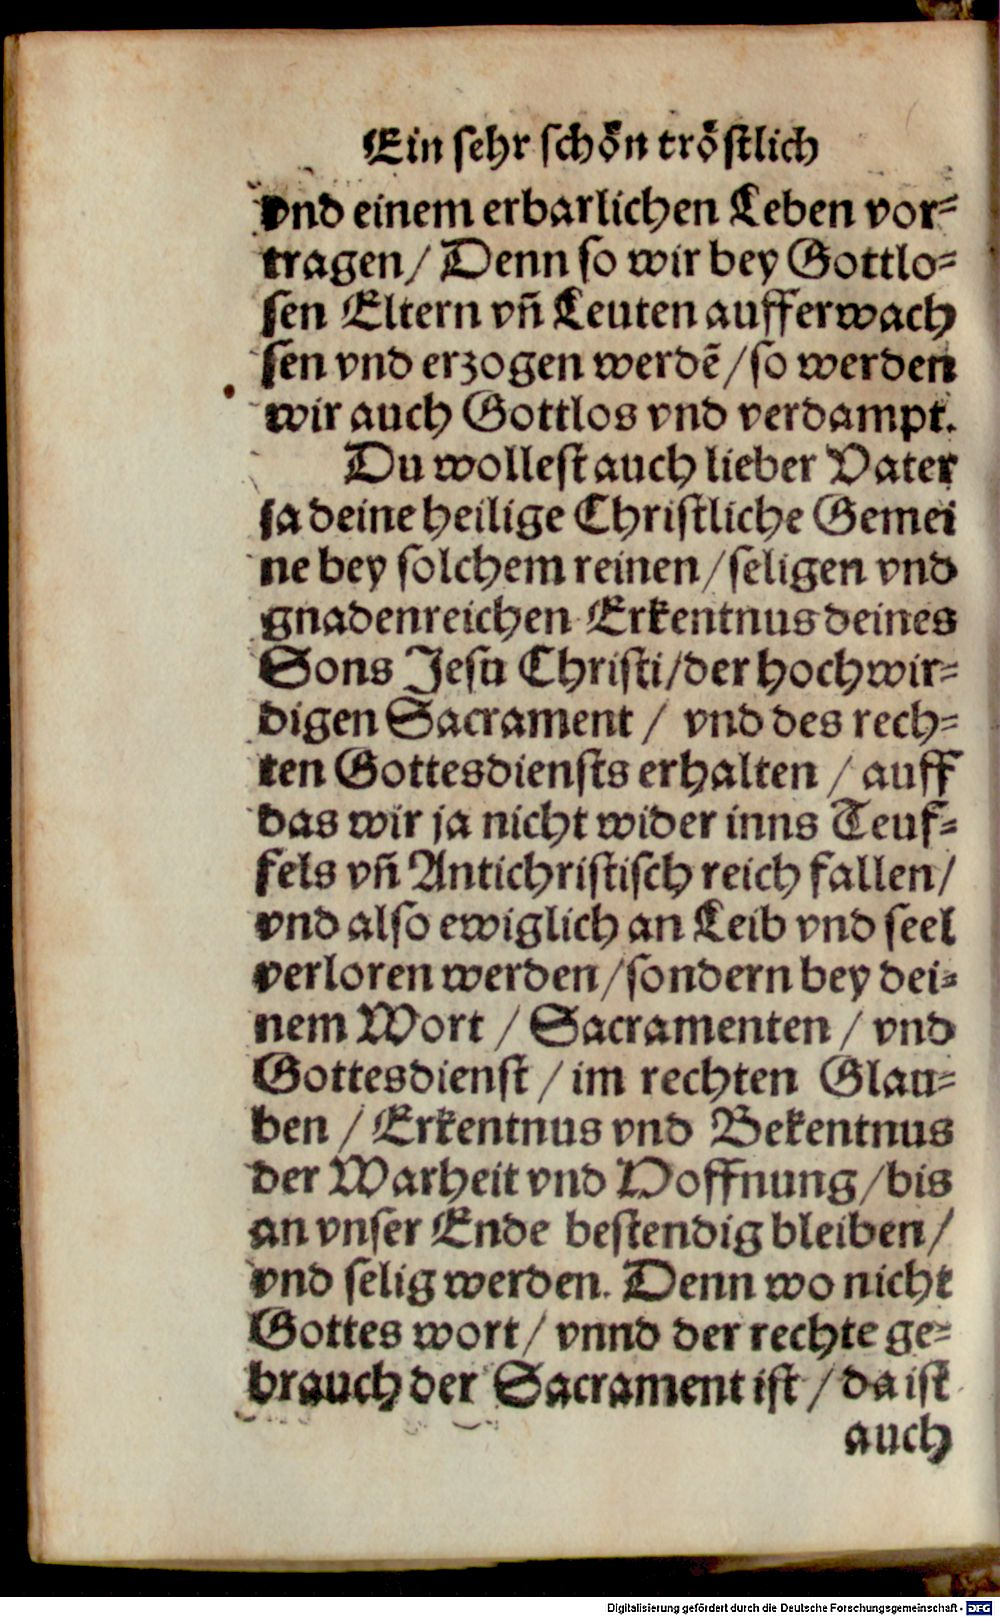 Ein sehr schoͤn troͤstlich
vnd einem erbarlichen Leben vor⸗
tragen / Denn so wir bey Gottlo⸗
sen Eltern vñ Leuten aufferwach
sen vnd erzogen werdẽ / so werden
wir auch Gottlos vnd verdampt.
Du wollest auch lieber Vater
ja deine heilige Christliche Gemei
ne bey solchem reinen / seligen vnd
gnadenreichen Erkentnus deines
Sons Jesu Christi / der hochwir⸗
digen Sacrament / vnd des rech⸗
ten Gottesdiensts erhalten / auff
das wir ja nicht wider inns Teuf⸗
fels vñ Antichristisch reich fallen /
vnd also ewiglich an Leib vnd seel
verloren werden / sondern bey dei⸗
nem Wort / Sacramenten / vnd
Gottesdienst / im rechten Glau⸗
ben / Erkentnus vnd Bekentnus
der Warheit vnd Hoffnung / bis
an vnser Ende bestendig bleiben /
vnd selig werden. Denn wo nicht
Gottes wort / vnnd der rechte ge⸗
brauch der Sacrament ist / da ist
auch
Digitalisierung gefördert durch die Deutsche Forschungsgemeinschaft - DFG